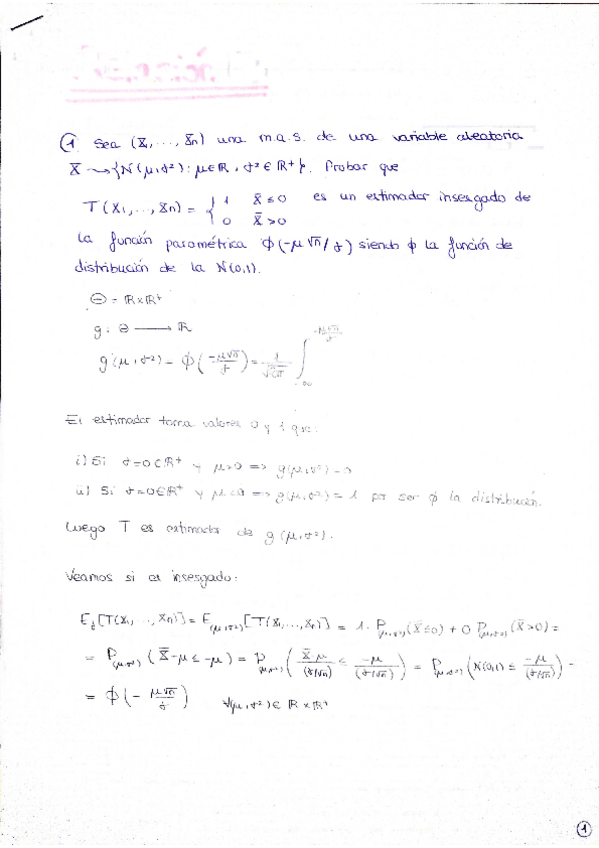 ① Sea (X₁, ..., Xn) una m.a.s. de una variable aleatoria
X ⟿ {N(μ, σ²) : μ ∈ ℝ, σ² ∈ ℝ⁺}. Probar que
T(X₁, ..., Xn) = { 1 X̄ ≤ 0 es un estimador insesgado de
0 X̄ > 0
la función paramétrica ϕ(-μ√n/σ) siendo ϕ la función de
distribución de la N(0,1).
Θ = ℝ×ℝ⁺
g: Θ ⟶ ℝ
g(μ, σ²) = ϕ(-μ√n/σ) = 1/√2π ∫_{-∞}^{-μ√n/σ}
El estimador toma valores 0 y 1 que:
i) Si σ=0∈ℝ⁺ y μ>0 => g(μ,σ²)=0
ii) Si σ=0∈ℝ⁺ y μ<0 => g(μ,σ²)=1 por ser ϕ la distribución.
Luego T es estimador de g(μ,σ²).
Veamos si es insesgado:
E[T(X₁, ..., Xn)] = E(μ,σ²)[T(X₁, ..., Xn)] = 1· P(μ,σ²)(X̄≤0) + 0 P(μ,σ²)(X̄>0) =
= P(μ,σ²)(X̄-μ ≤ -μ) = P(μ,σ²)((X̄-μ)/(σ/√n) ≤ -μ/(σ/√n)) = P(μ,σ²)(N(0,1) ≤ -μ/(σ/√n)) =
= ϕ(-μ√n/σ) ∀(μ,σ²) ∈ ℝ×ℝ⁺
①